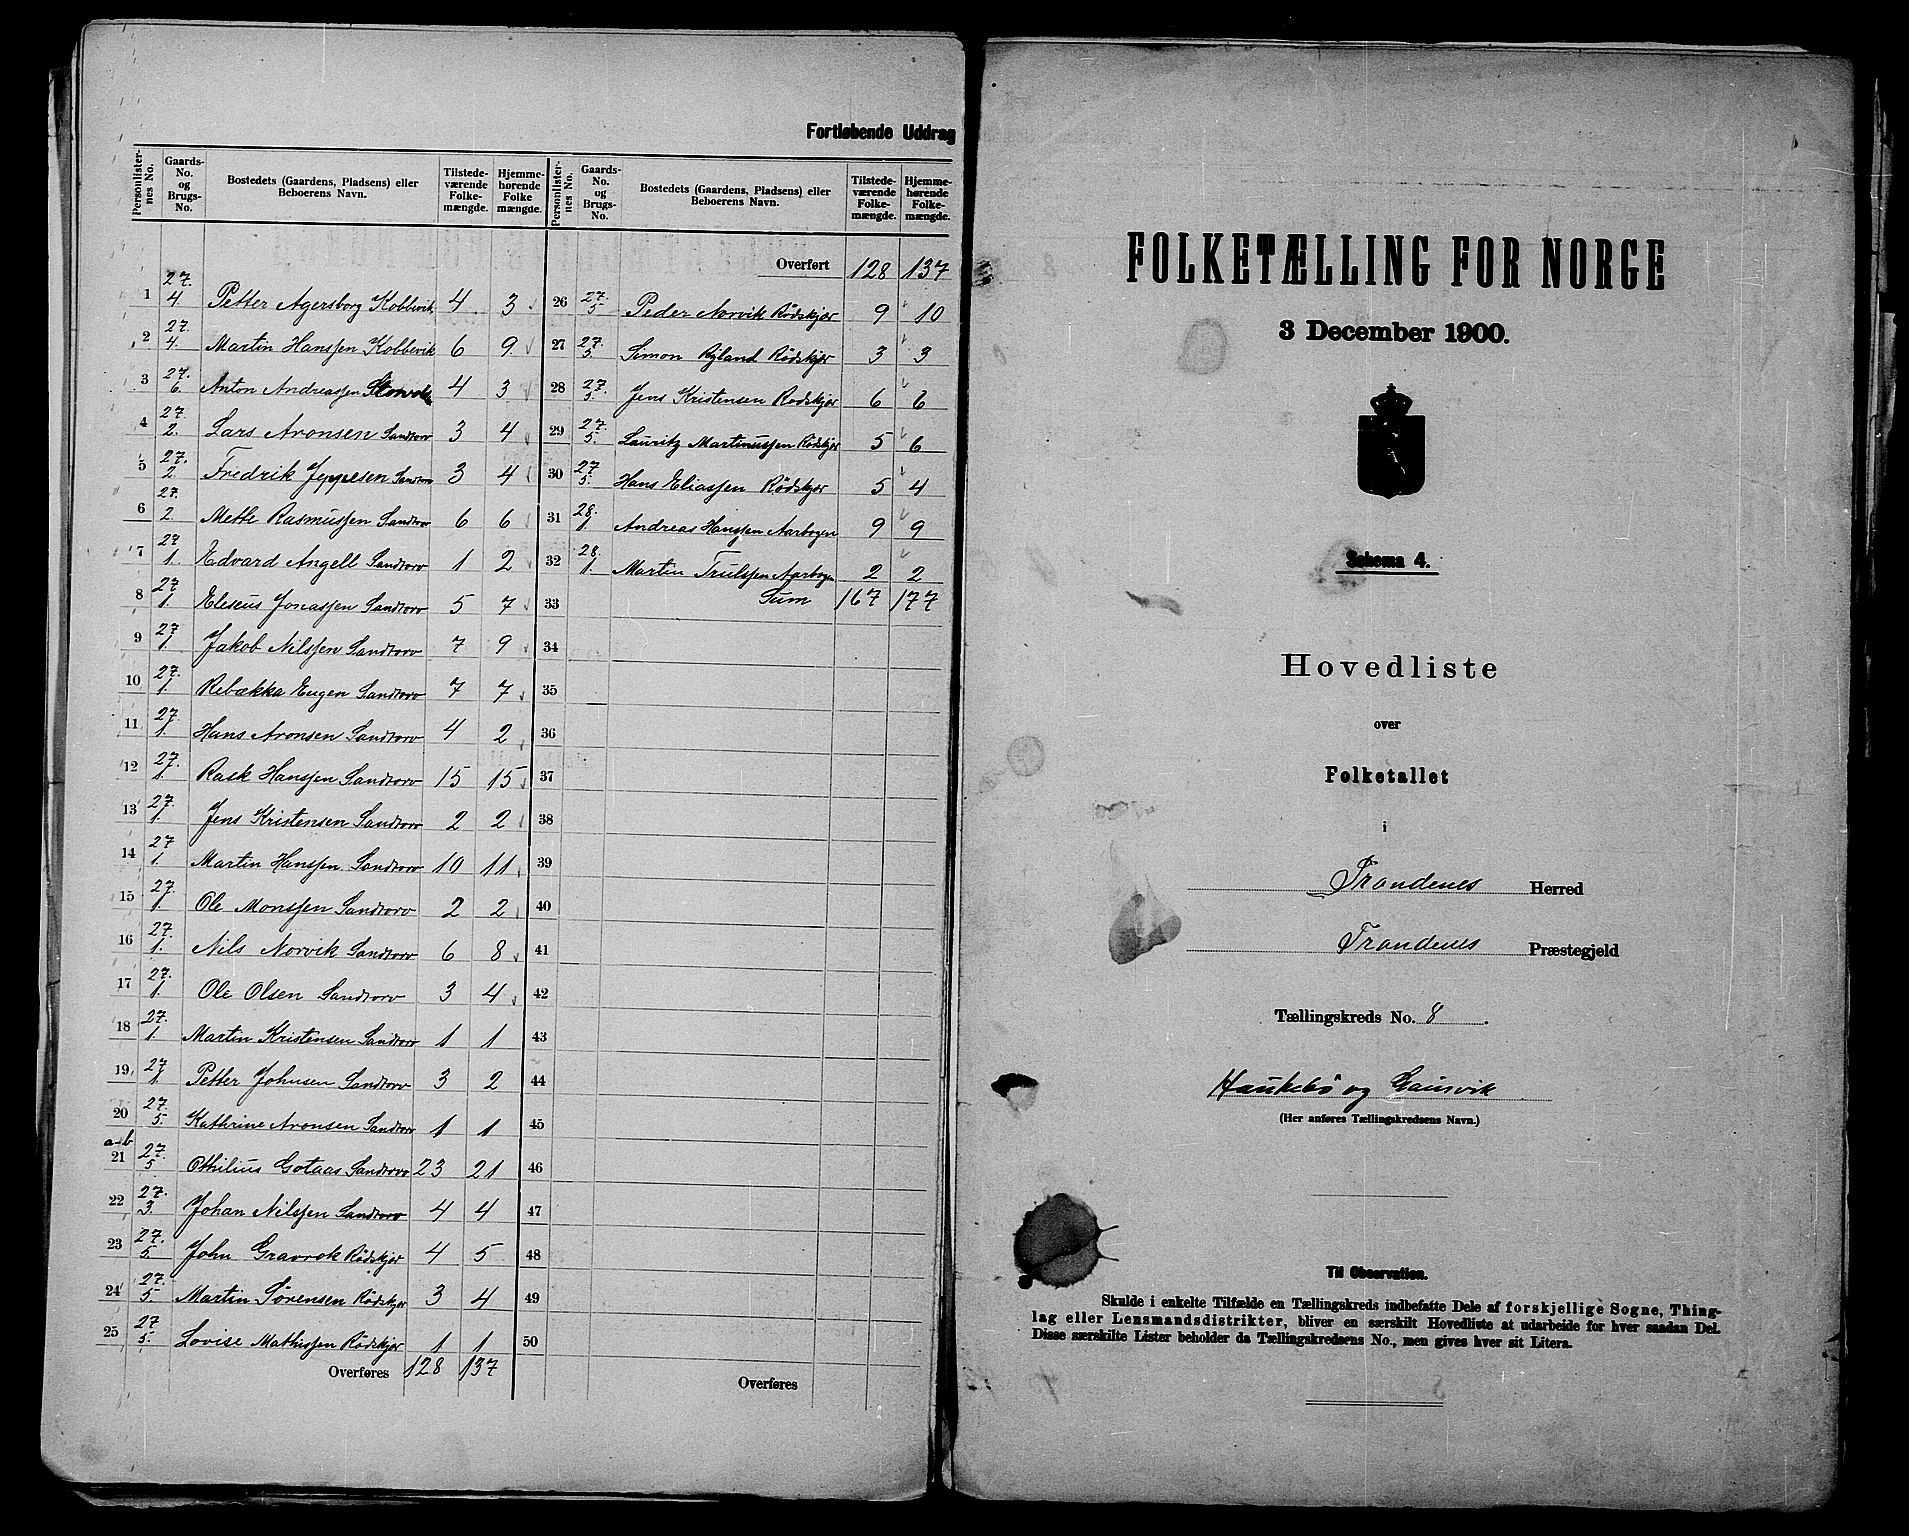 Fortløbende Uddrag
Personlisternes No. Gaards-No. og Brugs-No. Bostedets (Gaardens, Pladsens) eller Beboerens Navn. Tilstedeværende Folkemængde. Hjemmehørende Folkemængde.
Personlisternes No. Gaards-No. og Brugs-No. Bostedets (Gaardens, Pladsens) eller Beboerens Navn. Tilstedeværende Folkemængde. Hjemmehørende Folkemængde.
1 27. 4 Petter Agersborg Kobbevik 4 3
2 27. 4. Martin Hanssen Kobbevik 6 9
3 27. 6. Anton Andreassen 4 3
4 27. 2. Lars Aronsen Sandtorv 3 4
5 27. 2. Fredrik Jeppesen Sandtorv 3 4
6 27. 2. Mette Rasmussen Sandtorv 6 6
7 27 1. Edvard Angell Sandtorv 1 2
8 27 1. Eliseus Jonassen Sandtorv 5 7
9 27. 1. Jakob Nilssen Sandtorv 7 9
10 27. 1. Rebækka Eugen Sandtorv 7 7
11 27. 1. Hans Aronsen Sandtorv 4 2
12 27. 1. Rask Hanssen Sandtorv 15 15
13 27. 1. Jens Kristensen Sandtorv 2 2
14 27 1. Martin Hanssen Sandtorv 10 11
15 27. 1. Ole Monssen Sandtorv 2 2
16 27. 1. Nils Norvik Sandtorv 6 8
17 27. 1. Ole Olsen Sandtorv 3 4
18 27. 1. Martin Kristensen Sandtorv 1 1
19 27 1. Petter Johnsen Sandtorv 3 2
20 27. 5. Kathrine Aronsen Sandtorv 1 1
a-b
21 27. 5 Othilius Gotaas Sandtorv 23 21
22 27. 3. Johan Nilssen Sandtorv 4 4
23 27. 5. John Gravrok Rødskjer 4 5
24 27. 5. Martin Sørensen Rødskjer 3 4
25 27 5. Lovise Mathissen Rødskjer 1 1
Overføres 128 137
Overført 128 137
26 27. 5 Peder Norvik Rødskjær 9 10
27 27. 5. Simon Ryland Rødskjær 3 3
28 27. 5. Jens Kristensen Rødskjær 6 6
29 27. 5. Lauritz Martinussen Rødskjer 5 6
30 27 5. Hans Eliassen Rødskjer 5 4
31 28. 1. Andreas Hanssen Aarbogen 9 9
32 28. 1. Martin Trulssen Aarbogen 2 2
33 Sum 167 177
34
35
36
37
38
39
40
41
42
43
44
45
46
47
48
49
50
Overføres
FOLKETÆLLING FOR NORGE
3 December 1900.
Schema 4.
Hovedliste
over
Folketallet
i
Trondenes Herred
Trondenes Præstegjeld
Tællingskreds No. 8.
Haukebø og Gausvik
(Her anføres Tællingskredsens Navn.)
Til Observation.
Skulde i enkelte Tilfælde en Tællingskreds indbefatte Dele af forskjellige Sogne, Thing-
lag eller Lensmandsdistrikter, bliver en særskilt Hovedliste at udarbeide for hver saadan Del.
Disse særskilte Lister beholder da Tællingskredsens No., men gives hver sit Litera.